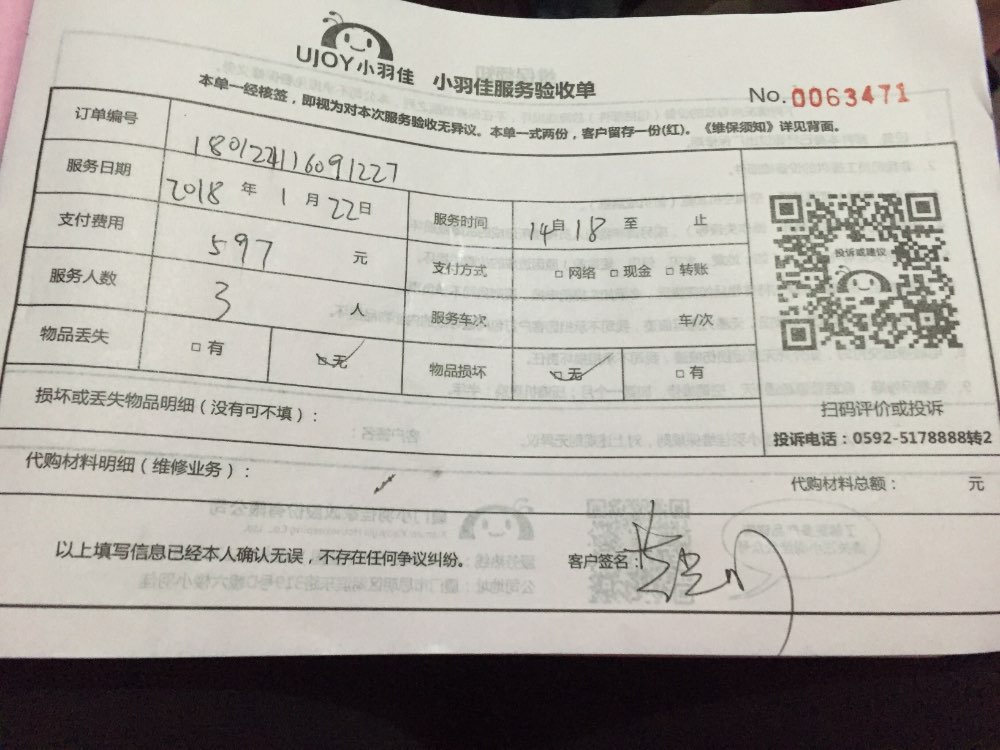 UJOY小羽佳 小羽佳服务验收单
No.0063471
本单一经核签，即视为对本次服务验收无异议。本单一式两份，客户留存一份(红)。《维保须知》详见背面。
订单编号 180122116091227
服务日期 2018 年 1 月 22日 服务时间 14自18 至 止
支付费用 597 元 支付方式 □网络 □现金 □转账
投诉或建议
服务人数 3 人 服务车次 车/次
物品丢失 □有 □无 物品损坏 □无 □有
扫码评价或投诉
投诉电话：0592-5178888转2
损坏或丢失物品明细（没有可不填）：
代购材料明细（维修业务）：
代购材料总额： 元
以上填写信息已经本人确认无误，不存在任何争议纠纷。 客户签名：